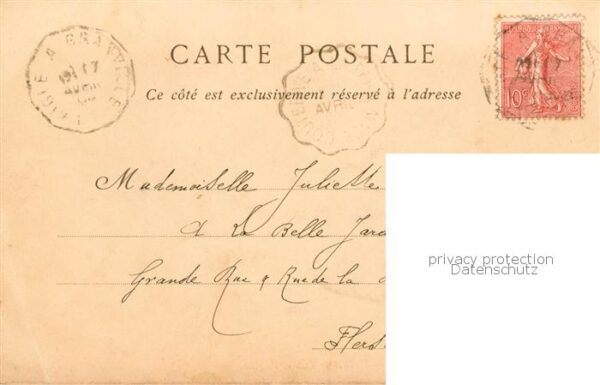 CARTE POSTALE
Ce côté est exclusivement réservé à l'adresse
10c
17
AVRIL
Mademoiselle Juliette
A La Belle Jard
Grande Rue & Rue de la
Flers
privacy protection
Datenschutz